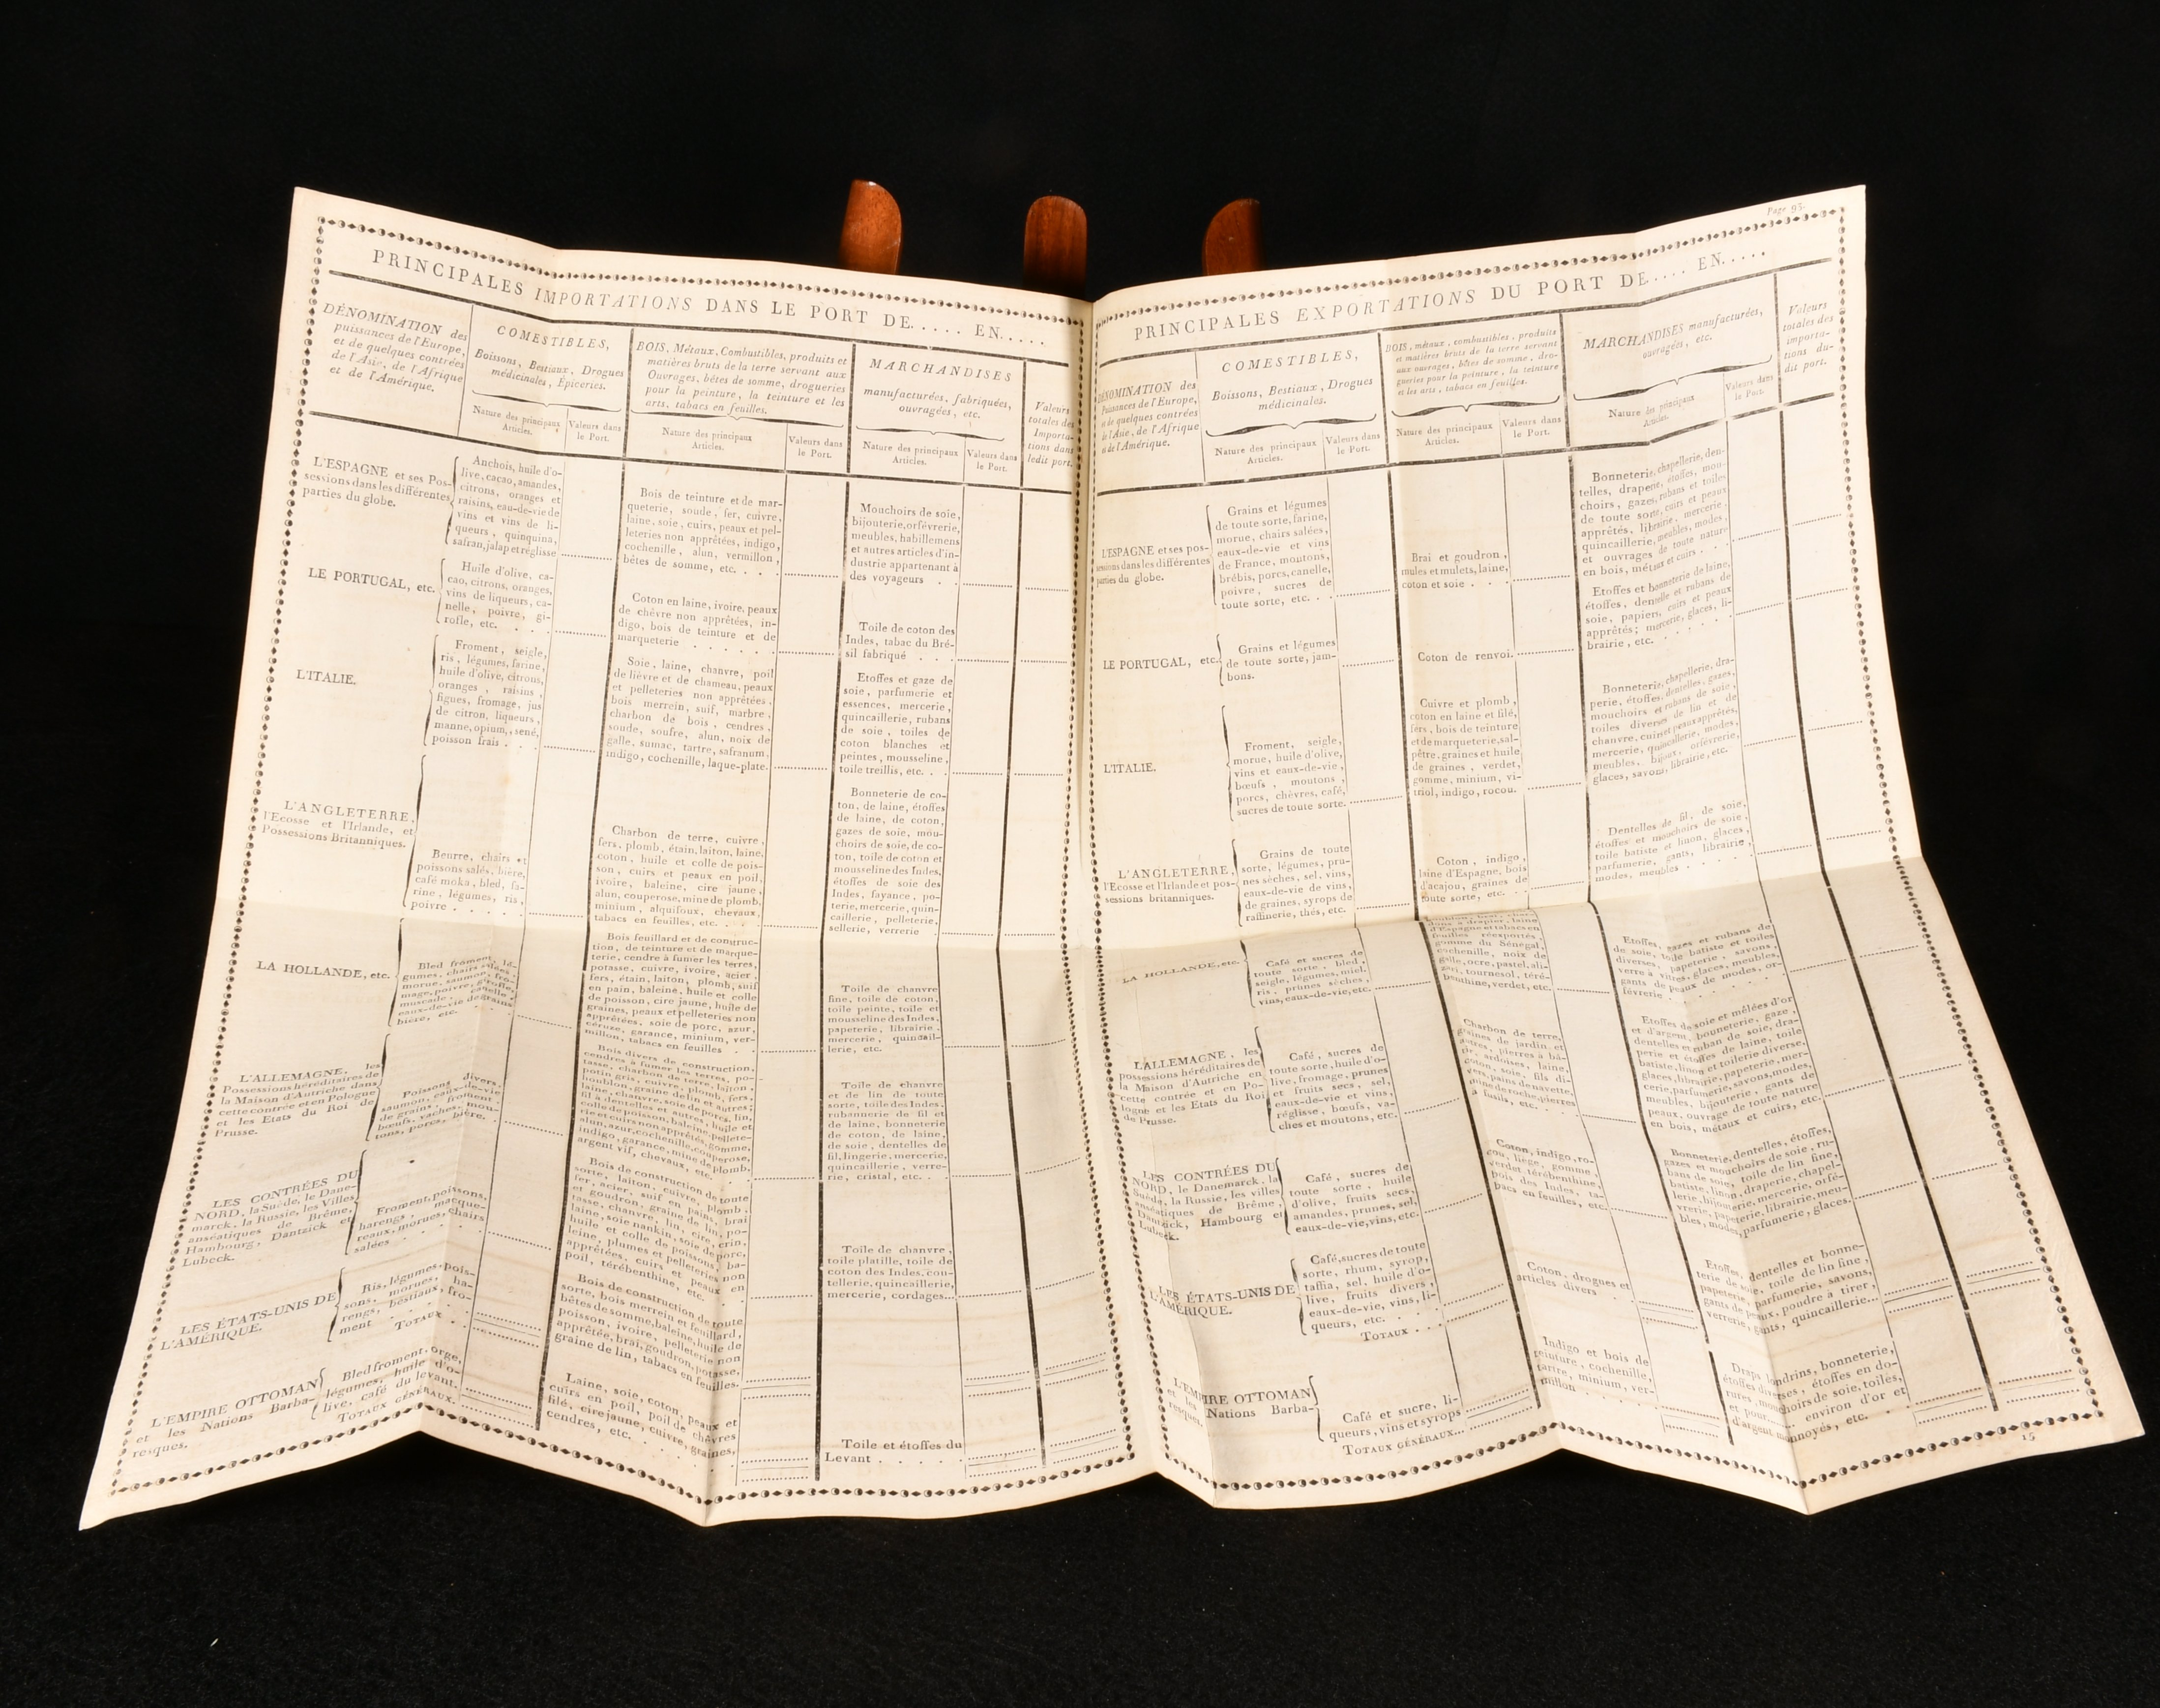 Page 93.
PRINCIPALES IMPORTATIONS DANS LE PORT DE..... EN.....
DÉNOMINATION des
puissances de l'Europe,
et de quelques contrées
de l'Asie, de l'Afrique
et de l'Amérique.
COMESTIBLES,
Boissons, Bestiaux, Drogues
médicinales, Épiceries.
Nature des principaux
Articles.
Valeurs dans
le Port.
BOIS, Métaux, Combustibles, produits et
matières bruts de la terre servant aux
Ouvrages, bêtes de somme, drogueries
pour la peinture, la teinture et les
arts, tabacs en feuilles.
Nature des principaux
Articles.
Valeurs dans
le Port.
MARCHANDISES
manufacturées, fabriquées,
ouvragées, etc.
Nature des principaux
Articles.
Valeurs dans
le Port.
Valeurs
totales des
Importa-
tions dans
ledit port.
L'ESPAGNE et ses Pos-
sessions dans les différentes
parties du globe.
Anchois, huile d'o-
live, cacao, amandes,
citrons, oranges et
raisins, eau-de-vie de
vins et vins de li-
queurs, quinquina,
safran, jalap et réglisse
Bois de teinture et de mar-
queterie, soude, fer, cuivre,
laine, soie, cuirs, peaux et pel-
leteries non apprêtées, indigo,
cochenille, alun, vermillon,
bêtes de somme, etc. . . .
Mouchoirs de soie,
bijouterie, orfévrerie,
meubles, habillemens
et autres articles d'in-
dustrie appartenant à
des voyageurs . .
LE PORTUGAL, etc.
Huile d'olive, ca-
cao, citrons, oranges,
vins de liqueurs, ca-
nelle, poivre, gi-
rofle, etc. . . .
Coton en laine, ivoire, peaux
de chêvre non apprêtées, in-
digo, bois de teinture et de
marqueterie . . . . . .
Toile de coton des
Indes, tabac du Bré-
sil fabriqué . . .
L'ITALIE.
Froment, seigle,
ris, légumes, farine,
huile d'olive, citrons,
oranges, raisins,
figues, fromage, jus
de citron, liqueurs,
manne, opium, sené,
poisson frais . . .
Soie, laine, chanvre, poil
de lièvre et de chameau, peaux
et pelleteries non apprêtées,
bois merrein, suif, marbre,
charbon de bois, cendres,
soude, soufre, alun, noix de
galle, sumac, tartre, safranum,
indigo, cochenille, laque-plate.
Etoffes et gaze de
soie, parfumerie et
essences, mercerie,
quincaillerie, rubans
de soie, toiles de
coton blanches et
peintes, mousseline,
toile treillis, etc. . .
L'ANGLETERRE,
l'Ecosse et l'Irlande, et
Possessions Britanniques.
Beurre, chairs et
poissons salés, bière,
café moka, bled, fa-
rine, légumes, ris,
poivre . . . . .
Charbon de terre, cuivre,
fers, plomb, étain, laiton, laine,
coton, huile et colle de pois-
son, cuirs et peaux en poil,
ivoire, baleine, cire jaune,
alun, couperose, mine de plomb,
minium, alquifoux, chevaux,
tabacs en feuilles, etc. . .
Bonneterie de co-
ton, de laine, étoffes
de laine, de coton,
gazes de soie, mou-
choirs de soie, de co-
ton, toile de coton et
mousseline des Indes,
étoffes de soie des
Indes, fayance, po-
terie, mercerie, quin-
caillerie, pelleterie,
sellerie, verrerie
LA HOLLANDE, etc.
Bled froment, lé-
gumes, chairs salées,
morue, saumon, fro-
mage, poivre, girofle,
muscade, canelle,
eaux-de-vie de grains,
bière, etc.
Bois feuillard et de construc-
tion, de teinture et de marque-
terie, cendre à fumer les terres,
potasse, cuivre, ivoire, acier,
fers, étain, laiton, plomb, suif
en pain, baleine, huile et colle
de poisson, cire jaune, huile de
graines, peaux et pelleteries non
apprêtées, soie de porc, azur,
céruze, garance, minium, ver-
millon, tabacs en feuilles . .
Toile de chanvre
fine, toile de coton,
toile peinte, toile et
mousseline des Indes,
papeterie, librairie,
mercerie, quincail-
lerie, etc.
L'ALLEMAGNE, les
Possessions héréditaires de
la Maison d'Autriche dans
cette contrée et en Pologne
et les Etats du Roi de
Prusse.
Poissons divers,
saumon, eaux-de-vie
de grains, froment,
bœufs, vaches, mou-
tons, porcs, bière.
Bois divers de construction,
cendres à fumer les terres, po-
tasse, charbon de terre, laiton,
potin gris, cuivre, plomb, fers,
houblon, graine de lin et autres;
laine, chanvre, soie de porc, lin,
fil à dentelles et autres, huile et
colle de poisson, baleine, pellete-
rie et cuirs non apprêtés, gomme,
alun, azur, cochenille, couperose,
indigo, garance, mine de plomb,
argent vif, chevaux, etc.
Toile de chanvre
et de lin de toute
sorte, toile des Indes,
rubannerie de fil et
de laine, bonneterie
de coton, de laine,
de soie, dentelles de
fil, lingerie, mercerie,
quincaillerie, verre-
rie, cristal, etc. . .
LES CONTRÉES DU
NORD, la Suède, le Dane-
marck, la Russie, les Villes
anséatiques de Brême,
Hambourg, Dantzick et
Lubeck.
Froment, poissons,
harengs, macque-
reaux, morues, chairs
salées . . . .
Bois de construction de toute
sorte, laiton, cuivre, plomb,
fer, acier, suif en pains, brai
et goudron, graine de lin, po-
tasse, chanvre, lin, crin,
laine, soie nankin, soie de porc,
huile et colle de poissons, ba-
leine, plumes et pelleteries non
apprêtées, cuirs et peaux en
poil, térébenthine, etc.
Toile de chanvre,
toile platille, toile de
coton des Indes, cou-
tellerie, quincaillerie,
mercerie, cordages...
LES ÉTATS-UNIS DE
L'AMÉRIQUE.
Ris, légumes, pois-
sons, morues, ha-
rengs, bestiaux, fro-
ment . . .
TOTAUX . .
Bois de construction de toute
sorte, bois merrein et feuillard,
bêtes de somme, baleine, huile de
poisson, ivoire, pelleterie non
apprêtée, brai, goudron, potasse,
graine de lin, tabacs en feuilles.
L'EMPIRE OTTOMAN
et les Nations Barba-
resques.
Bled froment, orge,
légumes, huile d'o-
live, café du levant.
TOTAUX GÉNÉRAUX.
Laine, soie, coton, peaux et
cuirs en poil, poil de chêvres
filé, cire jaune, cuivre, graines,
cendres, etc. . . . .
Toile et étoffes du
Levant . . . . .
PRINCIPALES EXPORTATIONS DU PORT DE.... EN.....
DÉNOMINATION des
Puissances de l'Europe,
et de quelques contrées
de l'Asie, de l'Afrique
et de l'Amérique.
COMESTIBLES,
Boissons, Bestiaux, Drogues
médicinales.
Nature des principaux
Articles.
Valeurs dans
le Port.
BOIS, métaux, combustibles, produits
et matières bruts de la terre servant
aux ouvrages, bêtes de somme, dro-
gueries pour la peinture, la teinture
et les arts, tabacs en feuilles.
Nature des principaux
Articles.
Valeurs dans
le Port.
MARCHANDISES manufacturées,
ouvragées, etc.
Nature des principaux
Articles.
Valeurs dans
le Port.
Valeurs
totales des
importa-
tions du-
dit port.
L'ESPAGNE et ses pos-
sessions dans les différentes
parties du globe.
Grains et légumes
de toute sorte, farine,
morue, chairs salées,
eaux-de-vie et vins
de France, moutons,
brébis, porcs, canelle,
poivre, sucres de
toute sorte, etc. . .
Brai et goudron,
mules et mulets, laine,
coton et soie . . .
Bonneterie, chapellerie, den-
telles, draperie, étoffes, mou-
choirs, gazes, rubans et toiles
de toute sorte, cuirs et peaux
apprêtés, librairie, mercerie,
quincaillerie, meubles, modes,
et ouvrages de toute nature
en bois, métaux et cuirs . . .
LE PORTUGAL, etc.
Grains et légumes
de toute sorte, jam-
bons.
Coton de renvoi.
Etoffes et bonneterie de laine,
étoffes, dentelle et rubans de
soie, papiers, cuirs et peaux
apprêtés; mercerie, glaces, li-
brairie, etc. . . . . .
L'ITALIE.
Froment, seigle,
morue, huile d'olive,
vins et eaux-de-vie,
bœufs, moutons,
porcs, chêvres, café,
sucres de toute sorte.
Cuivre et plomb,
coton en laine et filé,
fers, bois de teinture
et de marqueterie, sal-
pêtre, graines et huile
de graines, verdet,
gomme, minium, vi-
triol, indigo, rocou.
Bonneterie, chapellerie, dra-
perie, étoffes, dentelles, gazes,
mouchoirs et rubans de soie,
toiles diverses de lin et de
chanvre, cuirs et peaux apprêtés,
mercerie, quincaillerie, modes,
meubles, bijoux, orfévrerie,
glaces, savons, librairie, etc.
L'ANGLETERRE,
l'Ecosse et l'Irlande et pos-
sessions britanniques.
Grains de toute
sorte, légumes, pru-
nes sèches, sel, vins,
eaux-de-vie de vins,
de graines, syrops de
raffinerie, thés, etc.
Coton, indigo,
laine d'Espagne, bois
d'acajou, graines de
toute sorte, etc. . .
Dentelles de fil, de soie,
étoffes et mouchoirs de soie,
toile batiste et linon, glaces,
parfumerie, gants, librairie,
modes, meubles .
LA HOLLANDE, etc.
Café et sucres de
toute sorte, bled,
seigle, légumes, miel,
ris, prunes sèches,
vins, eaux-de-vie, etc.
d'Espagne et tabacs en
feuilles réexportés,
gomme du Sénégal,
cochenille, noix de
galle, ocre, pastel, ali-
zari, tournesol, téré-
benthine, verdet, etc.
Etoffes, gazes et rubans de
de soie, toile batiste et toiles
diverses, papeterie, savons,
verre à vitres, glaces, meubles,
gants de peaux de modes, or-
févrerie . . . . . .
L'ALLEMAGNE, les
possessions héréditaires de
la Maison d'Autriche en
cette contrée et en Po-
logne et les Etats du Roi
de Prusse.
Café, sucres de
toute sorte, huile d'o-
live, fromage, prunes
et fruits secs, sel,
eaux-de-vie et vins,
réglisse, bœufs, va-
ches et moutons, etc.
Charbon de terre,
graines de jardin et
autres, pierres à bâ-
tir, ardoises, laine,
coton, soie, fils di-
vers, pains de navette,
mine de roche, pierres
à fusils, etc. . . .
Etoffes de soie et mêlées d'or
et d'argent, bonneterie, gaze,
dentelles et ruban de soie, dra-
perie et étoffes de laine, toile
batiste, linon et toilerie diverse,
glaces, librairie, papeterie, mer-
cerie, parfumerie, savons, modes,
meubles, bijouterie, gants de
peaux, ouvrage de toute nature
en bois, métaux et cuirs, etc.
LES CONTRÉES DU
NORD, le Danemarck, la
Suède, la Russie, les villes
anséatiques de Brême,
Dantzick, Hambourg et
Lubeck.
Café, sucres de
toute sorte, huile
d'olive, fruits secs,
amandes, prunes, sel,
eaux-de-vie, vins, etc.
Coton, indigo, ro-
cou, liège, gomme,
verdet, térébenthine,
pois des Indes, ta-
bacs en feuilles, etc.
Bonneterie, dentelles, étoffes,
gazes et mouchoirs de soie, ru-
bans de soie, toile de lin fine,
batiste, linon, draperie, chapel-
lerie, bijouterie, mercerie, orfé-
vrerie, papeterie, librairie, meu-
bles, modes, parfumerie, glaces.
LES ÉTATS-UNIS DE
L'AMÉRIQUE.
Café, sucres de toute
sorte, rhum, syrop,
taffia, sel, huile d'o-
live, fruits divers,
eaux-de-vie, vins, li-
queurs, etc. . .
TOTAUX . . .
Coton, drogues et
articles divers . .
Etoffes, dentelles et bonne-
terie de soie, toile de lin fine,
papeterie, parfumerie, savons,
gants de peaux, poudre à tirer,
verrerie, gants, quincaillerie...
L'EMPIRE OTTOMAN
et les Nations Barba-
resques.
Café et sucre, li-
queurs, vins et syrops
TOTAUX GÉNÉRAUX...
Indigo et bois de
teinture, cochenille,
tartre, minium, ver-
millon . . .
Draps londrins, bonneterie,
étoffes diverses, étoffes en do-
rures, mouchoirs de soie, toiles,
et pour..... environ d'or et
d'argent monnoyés, etc. . .
15